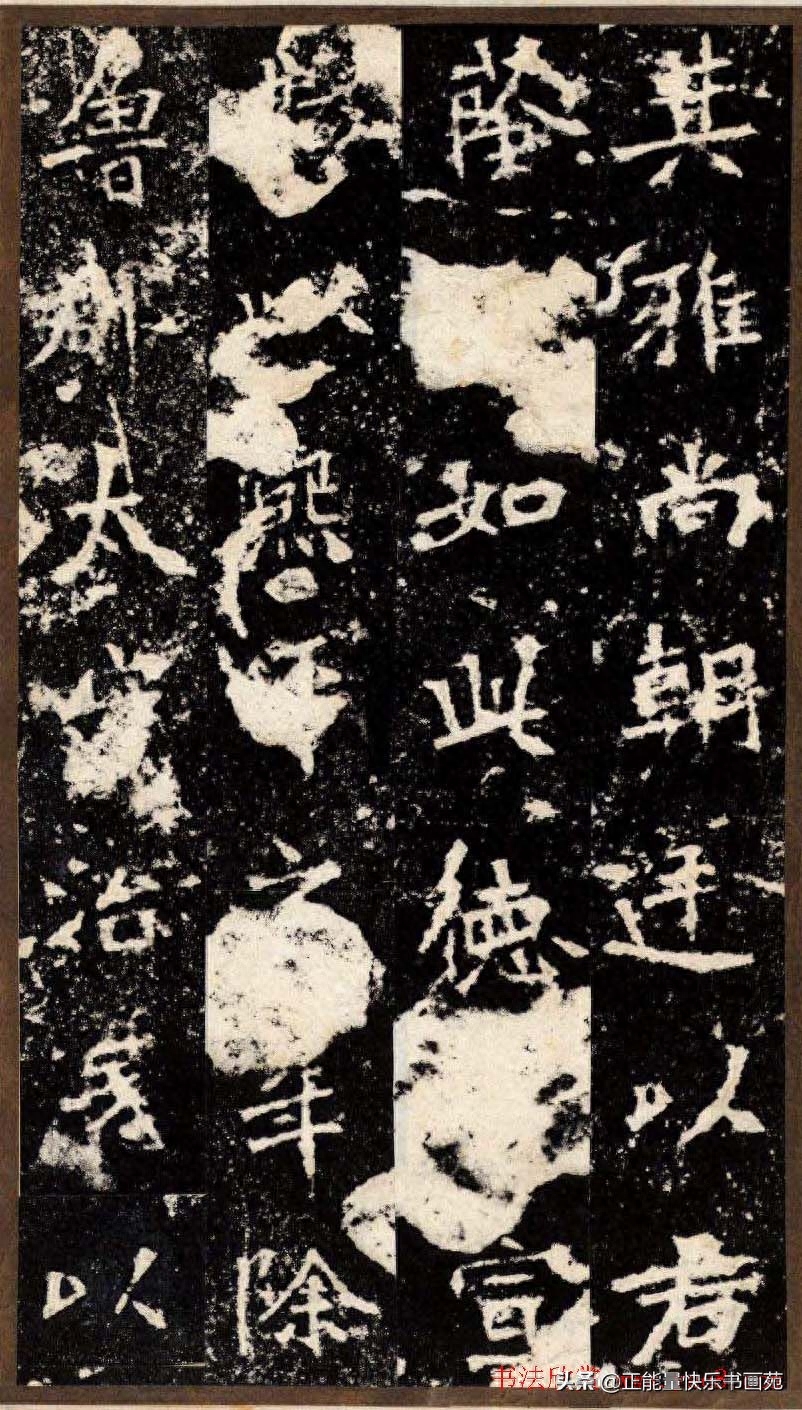 其雅尚朝廷以君
蔭如此德宣
熙之年除
魯郡太守治民以
书法欣赏
头条@正能量快乐书画苑